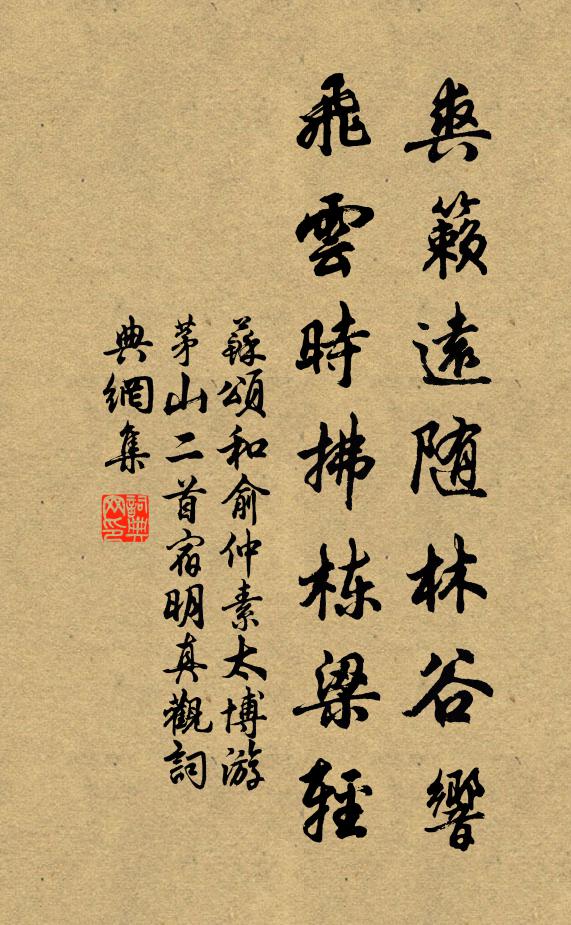 爽籟遠随林谷響
飛雲時拂棟梁輕
蘇頌和俞仲素太博游
茅山二首宿明真觀詞
典網集
詞典
网印